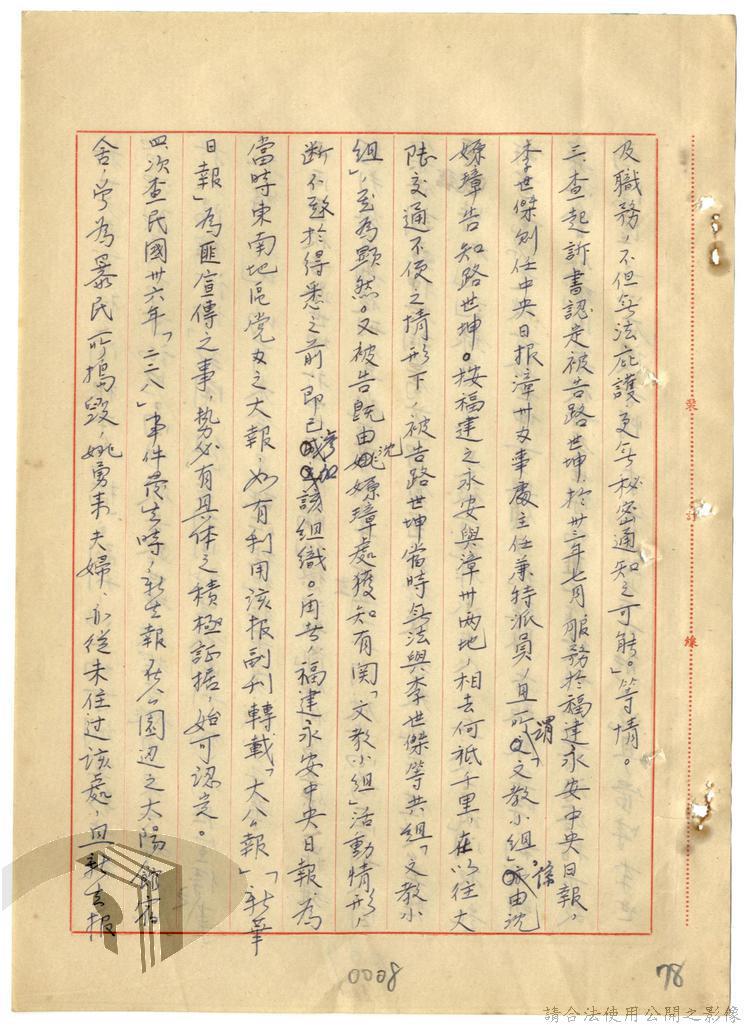 及職務,不但無法庇護,更無秘密通知之可能。」等情。
三、查起訴書認定被告路世坤,於卅三年七月服務於福建永安中央日報,
李世傑則任中央日报漳州办事處主任兼特派員,且所謂「文教小組」係由沈
嫄璋告知路世坤。按福建之永安與漳州两地,相去何祇千里,在以往大
陸交通不便之情形下,被告路世坤當時無法與李世傑等共組「文教小
組」,至為顯然。又被告既由沈嫄璋處獲知有関「文教小組」活動情形,
断不致於得悉之前,即已參加該組織。再者,福建永安中央日報,為
當時東南地區党办之大報,如有利用該报副刊轉載「大公報」「新華
日報」為匪宣傳之事,勢必有具体之積極証据,始可認定。
四、次查民國卅六年「二二八」事件發生時,新生報在公園边之太陽館宿
舍,曾為暴民所搗毀,姚勇来夫婦,亦從未住过該處,且新生报
裝 訂 線
0008
78
請合法使用公開之影像